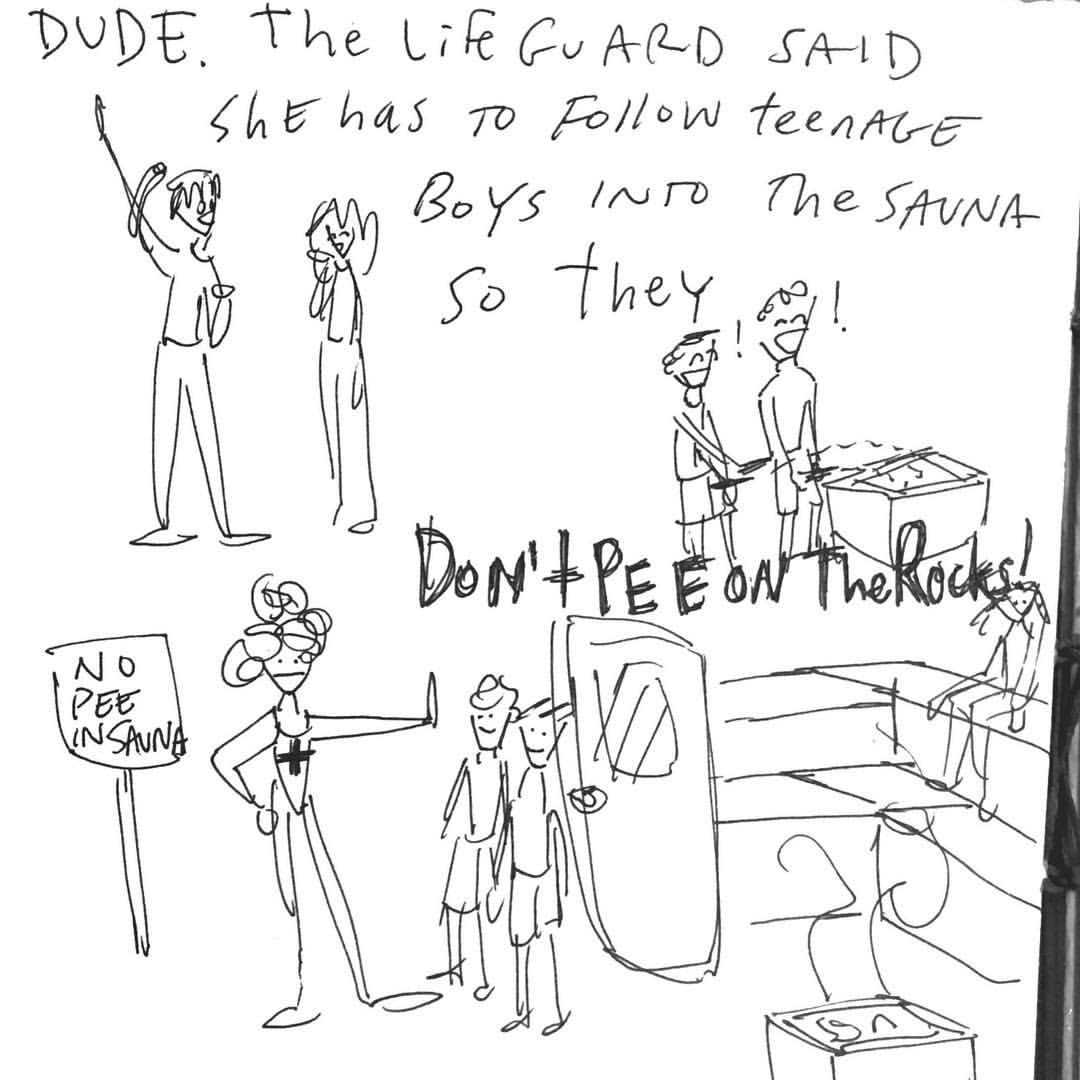 DUDE. The LifEGUARD SAID
ShE has TO Follow teenAGE
BoYS INTO The SAUNA
So they
! !
DoN't PEE ON The Rocks!
NO
PEE
IN SAUNA